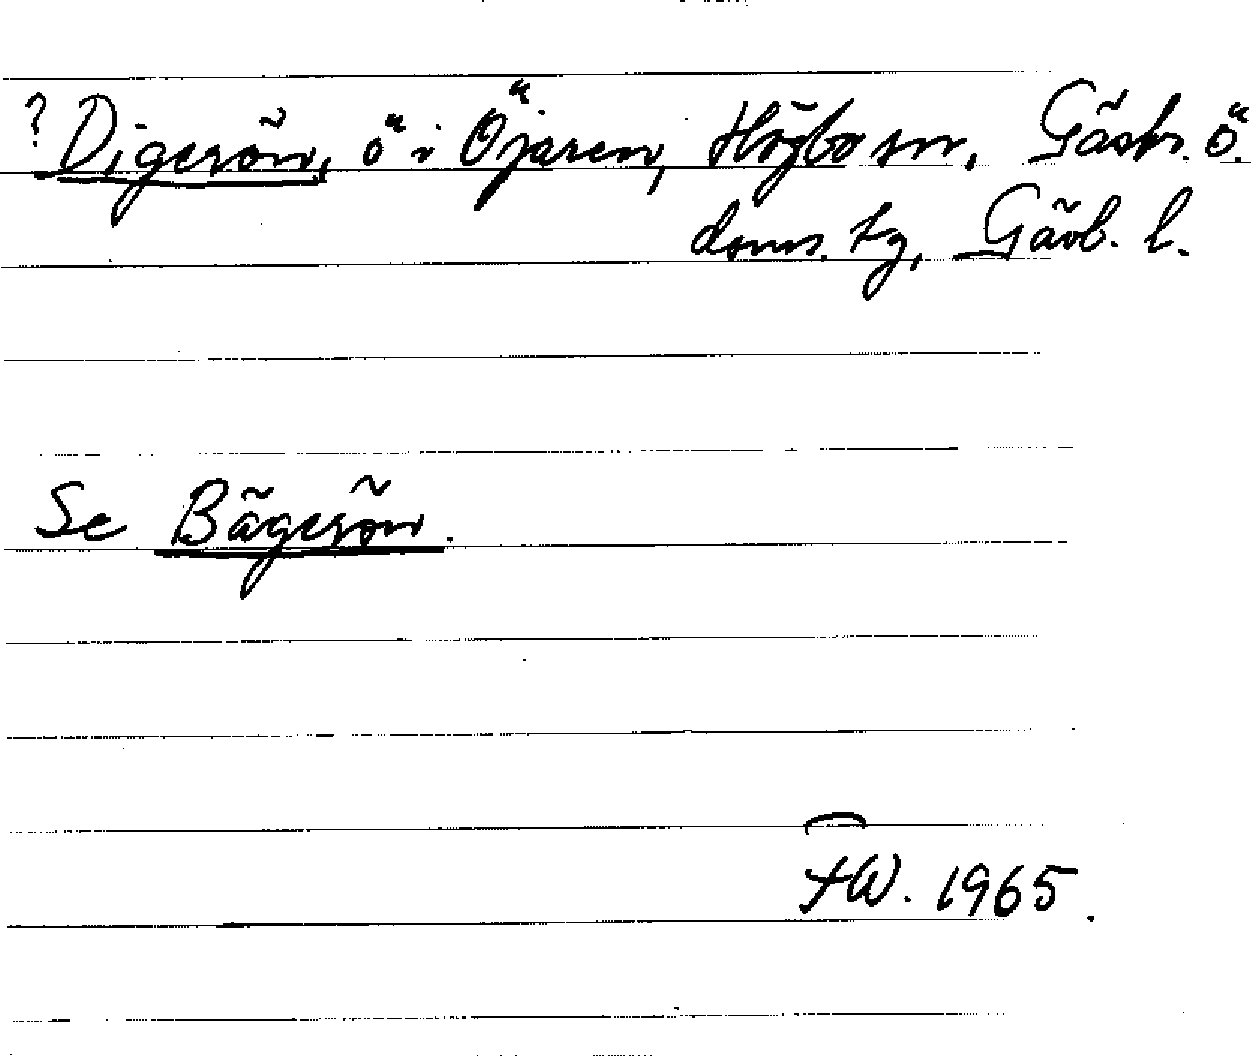 ? Digerön, ö i Öjaren, Högbo sn, Gästr. ö.
doms. tg, Gävl. l.
Se Bägerön.
FW. 1965.